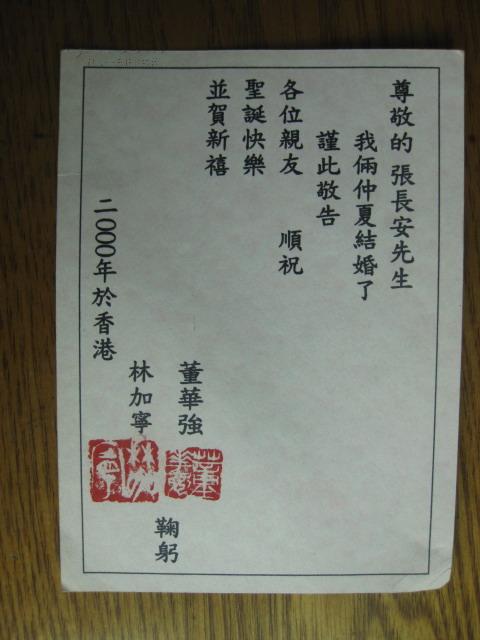 尊敬的 張長安先生
我倆仲夏結婚了
謹此敬告
各位親友 順祝
聖誕快樂
並賀新禧
董華強
林加寧
鞠躬
二000年於香港